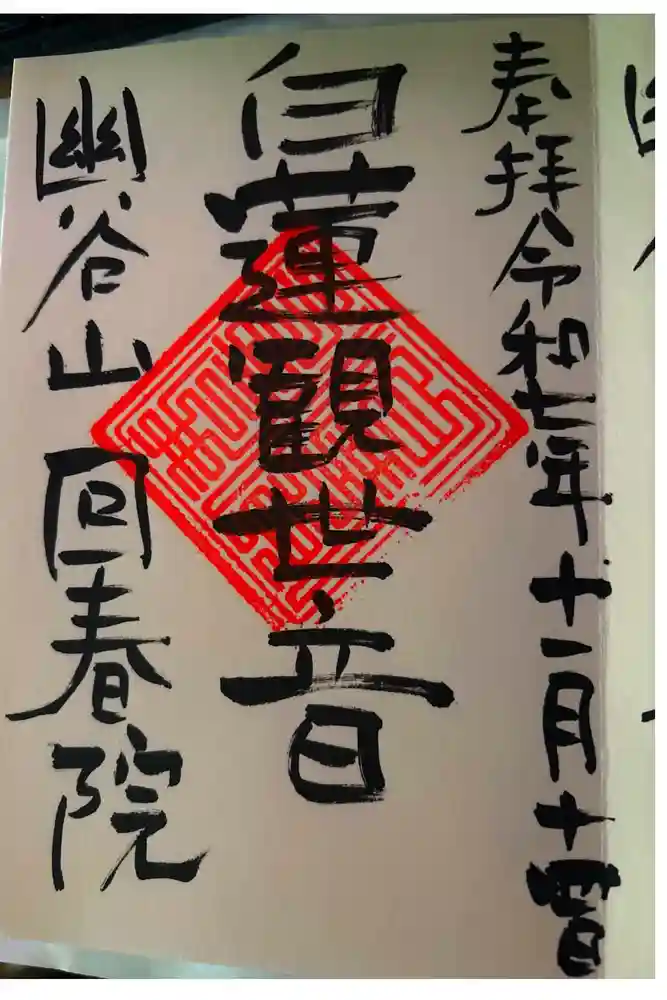 奉拝 令和七年十一月十
白蓮觀世音
幽谷山 回春院